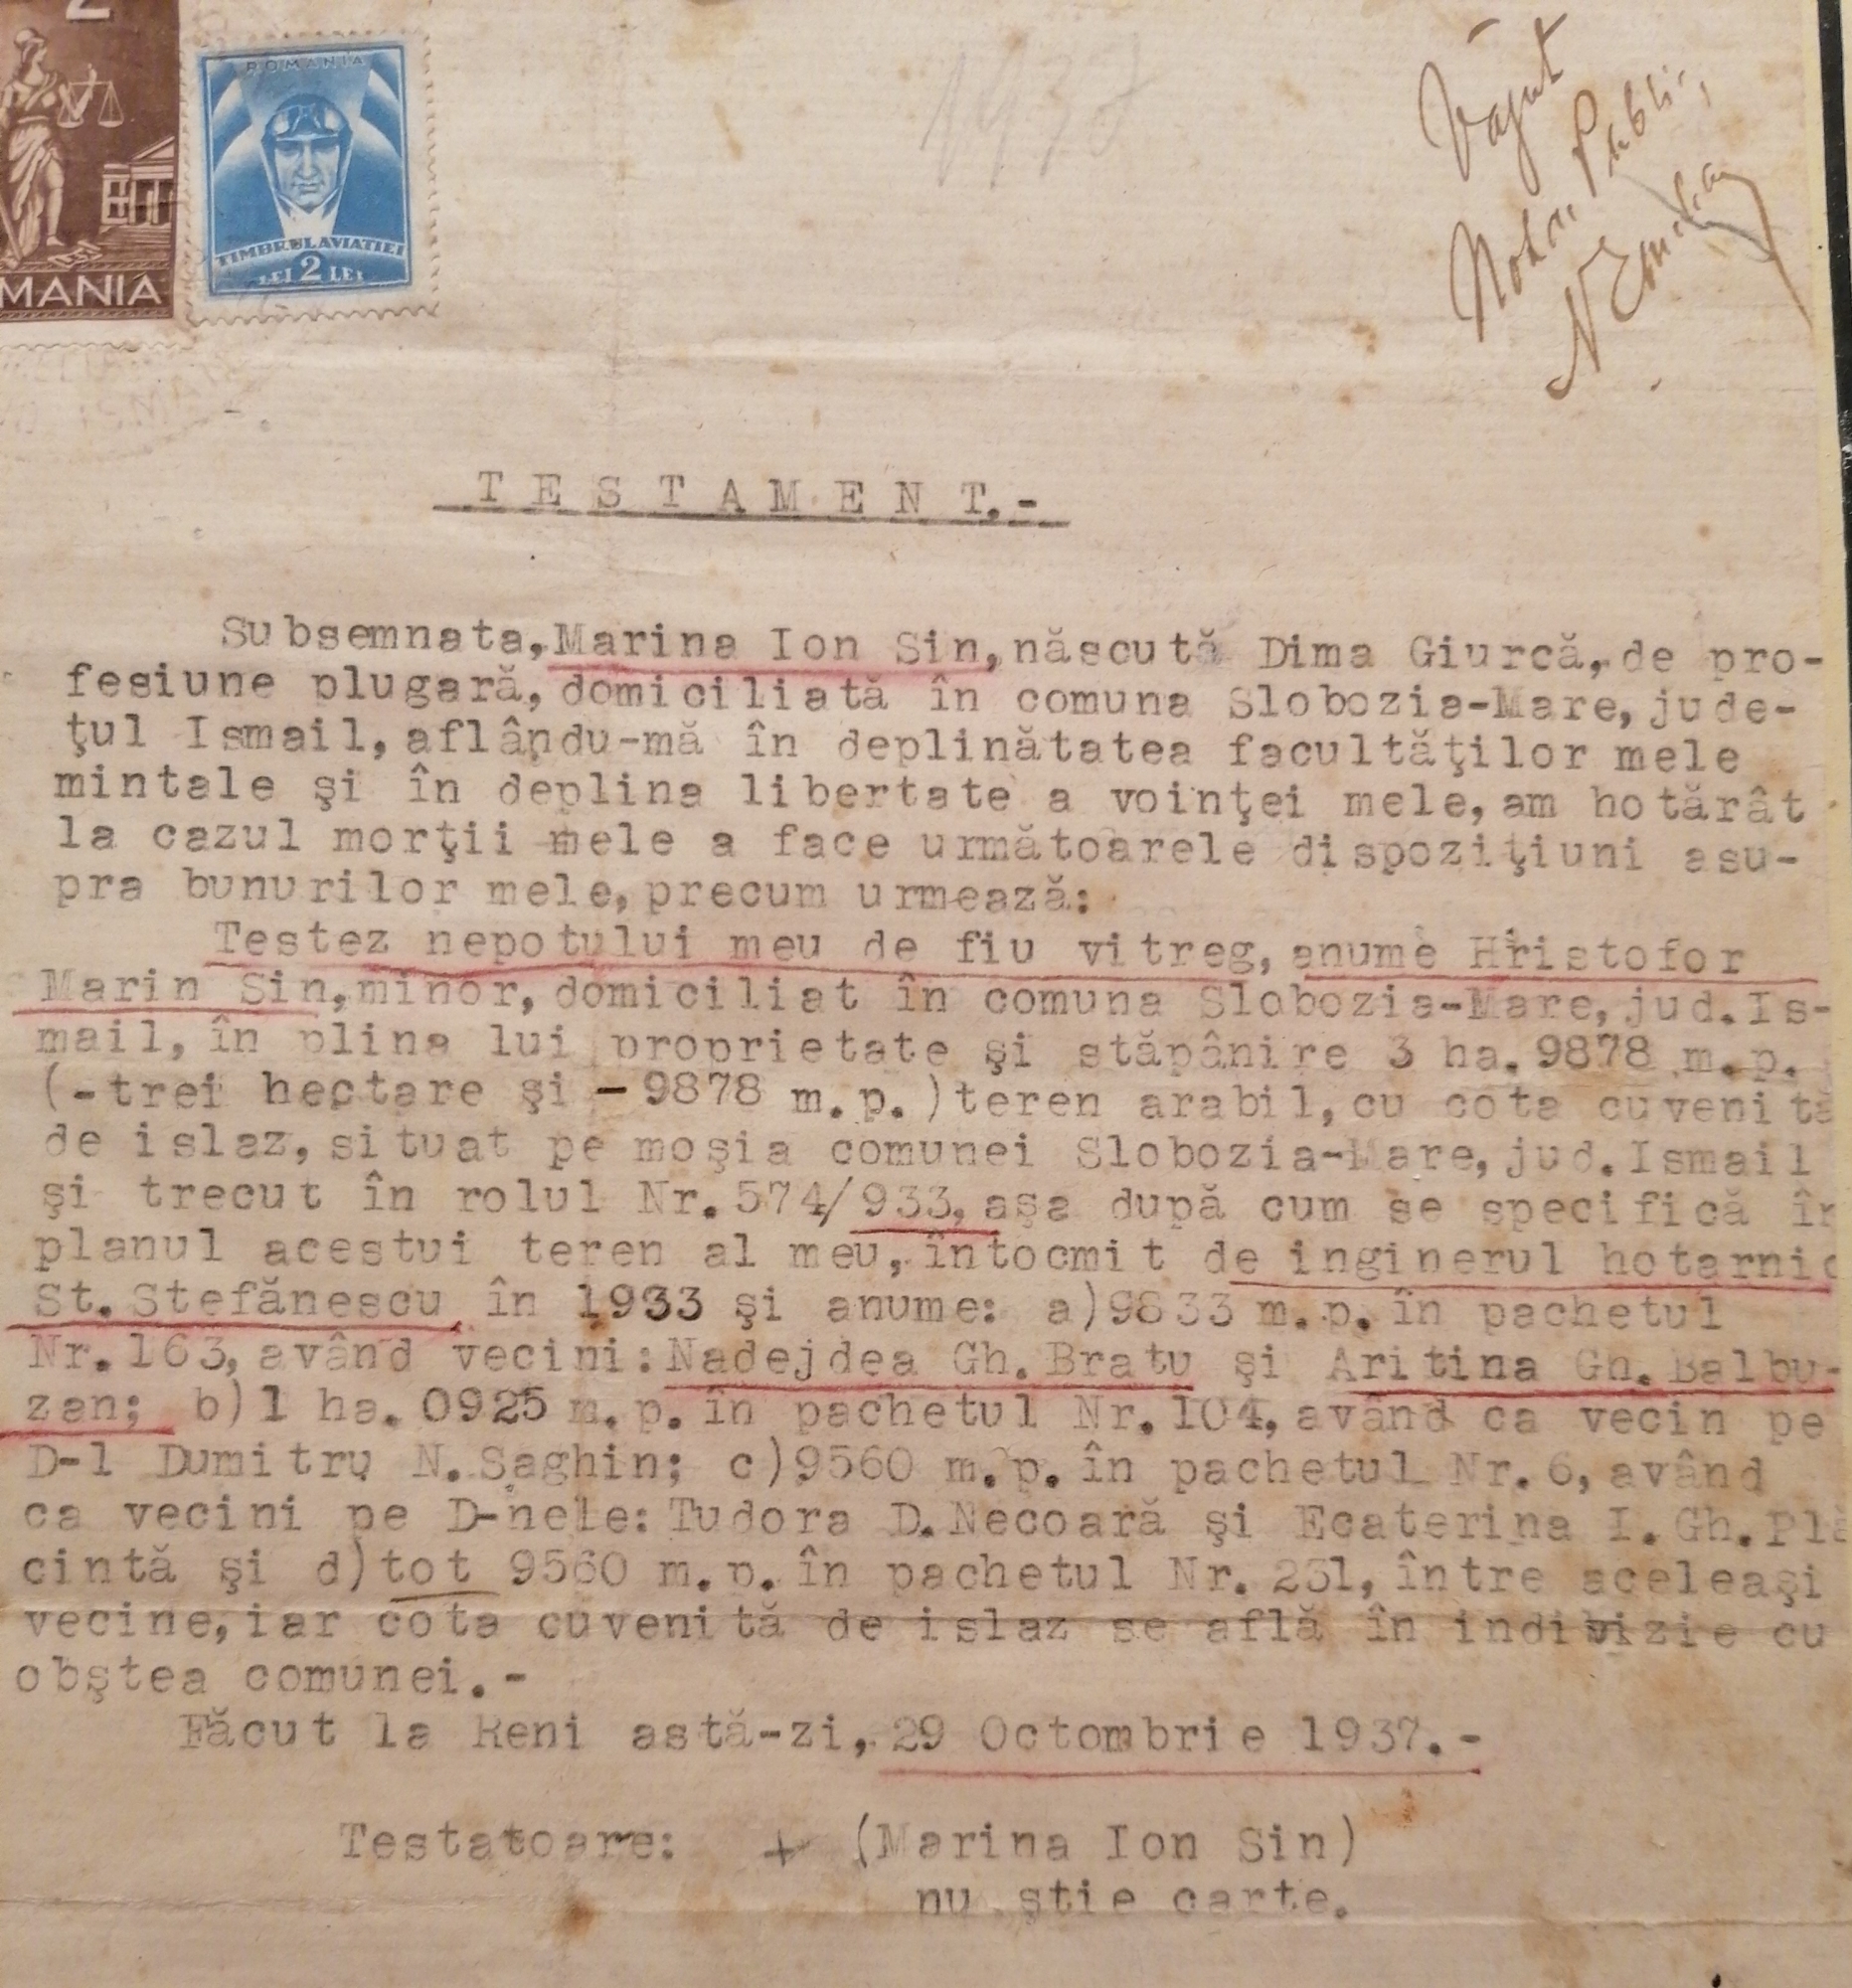 2
MANIA
ROMANIA
TIMBRUL AVIATIEI
LEI 2 LEI
1937
Văzut
Notar Public,
T E S T A M E N T.-
Subsemnata, Marina Ion Sin, născută Dima Giurcă, de pro-
fesiune plugară, domiciliată în comuna Slobozia-Mare, jude-
ţul Ismail, aflându-mă în deplinătatea facultăţilor mele
mintale şi în deplina libertate a voinţei mele, am hotărât
la cazul morţii mele a face următoarele dispoziţiuni asu-
pra bunurilor mele, precum urmează:
Testez nepotului meu de fiu vitreg, anume Hristofor
Marin Sin, minor, domiciliat în comuna Slobozia-Mare, jud. Is-
mail, în plina lui proprietate şi stăpânire 3 ha. 9878 m.p.
(-trei hectare şi - 9878 m.p.) teren arabil, cu cota cuvenită
de islaz, situat pe moşia comunei Slobozia-Mare, jud. Ismail
şi trecut în rolul Nr. 574/933, aşa după cum se specifică în
planul acestui teren al meu, întocmit de inginerul hotarnic
St. Stefănescu în 1933 şi anume: a) 9833 m.p. în pachetul
Nr. 163, având vecini: Nadejdea Gh. Bratu şi Aritina Gh. Balbu-
zan; b) 1 ha. 0925 m.p. în pachetul Nr. 104, având ca vecin pe
D-l Dumitru N. Saghin; c) 9560 m.p. în pachetul Nr. 6, având
ca vecini pe D-nele: Tudora D. Necoară şi Ecaterina I. Gh. Plă
cintă şi d) tot 9560 m.p. în pachetul Nr. 231, între aceleaşi
vecine, iar cota cuvenită de islaz se află în indivizie cu
obştea comunei.-
Făcut la Reni astă-zi, 29 Octombrie 1937.-
Testatoare: + (Marina Ion Sin)
nu ştie carte.